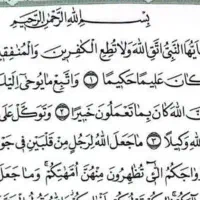 بِسْمِ اللَّهِ الرَّحْمَٰنِ الرَّحِيمِ
يَا أَيُّهَا النَّبِيُّ اتَّقِ اللَّهَ وَلَا تُطِعِ الْكَافِرِينَ وَالْمُنَافِقِ
كَانَ عَلِيمًا حَكِيمًا ١ وَاتَّبِعْ مَا يُوحَىٰ إِلَيْكَ
نَّ اللَّهَ كَانَ بِمَا تَعْمَلُونَ خَبِيرًا ٢ وَتَوَكَّلْ عَلَى
للَّهِ وَكِيلًا ٣ مَا جَعَلَ اللَّهُ لِرَجُلٍ مِنْ قَلْبَيْنِ فِي جَوْ
زْوَاجَكُمُ اللَّائِي تُظَاهِرُونَ مِنْهُنَّ أُمَّهَاتِكُمْ وَمَا جَعَلَ